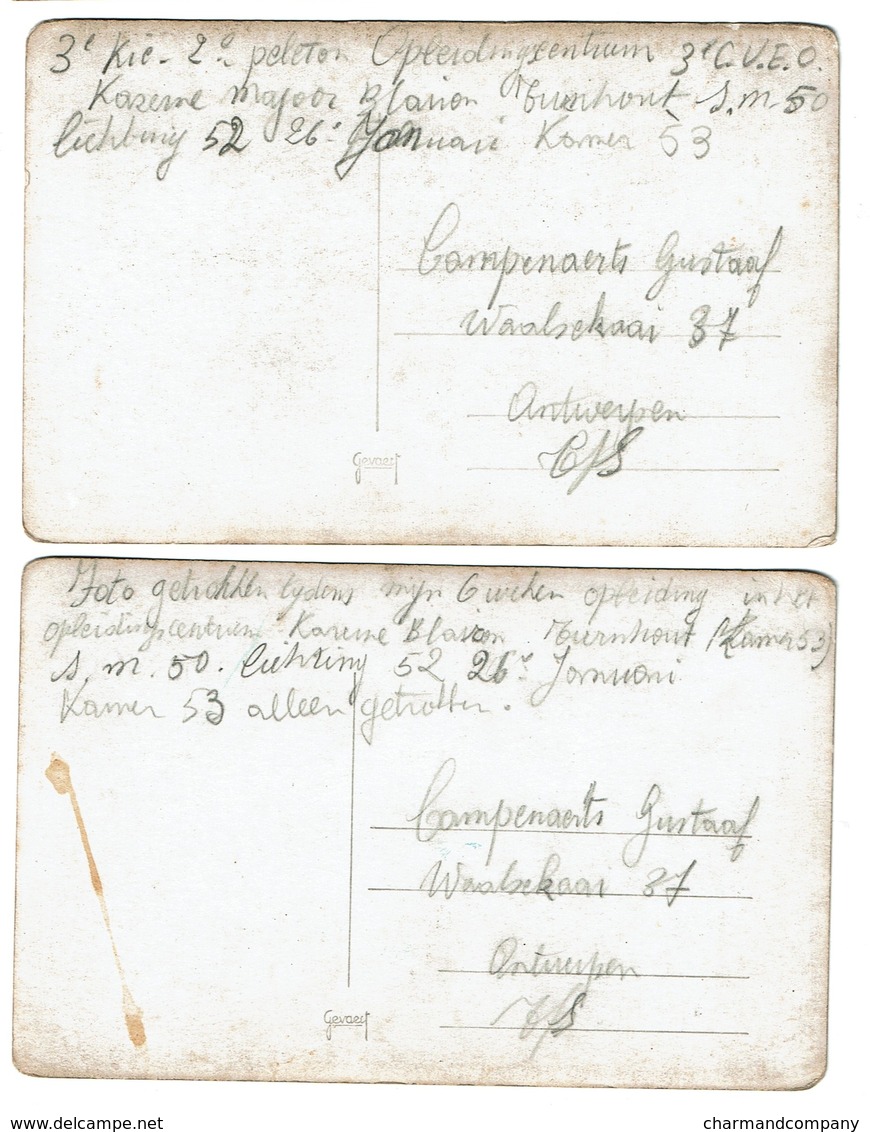 3e Kie - 2e peleton Opleidingscentrum 3e C.V.E.O.
Kazerne Majoor Blairon Turnhout S.M. 50
lichting 52 26e Januari Kamer 53
Campenaerts Gustaaf
Waalsekaai 37
Antwerpen
Gevaert
Foto getrokken tydens myn 6 weken opleiding in het
opleidingscentrum Kazerne Blairon Turnhout (Kamer 53)
S.M. 50. lichting 52 26e Januari
Kamer 53 alleen getrokken.
Campenaerts Gustaaf
Waalsekaai 37
Antwerpen
Gevaert
www.delcampe.net
charmandcompany